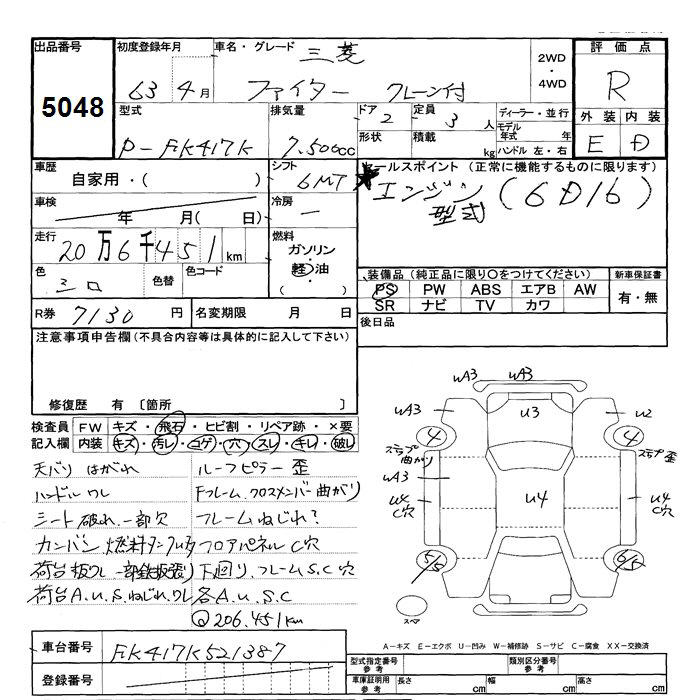 出品番号 初度登録年月 車名・グレード 三菱 評価点
5048 63年 4月 ファイター クレーン付 2WD・4WD R
型式 排気量 ドア 2 定員 3人 ディーラー・並行 外装 内装
P-FK417K 7.500cc 形状 積載 kg モデル年式 年 ハンドル 左・右 E D
車歴 自家用・( ) シフト 6MT セールスポイント (正常に機能するものに限ります)
車検 年 月( 日) 冷房 — エンジン型式 (6D16)
走行 20万6千451km 燃料 ガソリン・軽油・( )
色 シロ 色替 色コード 装備品 (純正品に限り○をつけてください) 新車保証書
PS PW ABS エアB AW 有・無
SR ナビ TV カワ
R券 7130円 名変期限 月 日 後日品
注意事項申告欄 (不具合内容等は具体的に記入して下さい)
修復歴 有 〔箇所 〕
検査員 FW キズ・飛石・ヒビ割・リペア跡・×要
記入欄 内装 キズ・汚レ・コゲ・穴・スレ・キレ・破レ
天バリ はがれ ルーフピラー 歪
ハンドル ワレ Fフレーム、クロスメンバー曲がり
シート 破れ、一部欠 フレームねじれ?
カンバン 燃料タンク フロアパネル C穴
荷台 板ワレ 一部鉄板張り 下廻り、フレームS.C穴
荷台 A.U.S.ねじれ.ワレ 各A.U.S.C
@206.451km
uA3 uA3
uA3 u3 u2
4 4
ステップ曲がり ステップ歪
uA3
u4 C穴 u4 u4 C穴
5/5 6/5
スペア
車台番号 FK417K521387
登録番号
A-キズ E-エクボ U-凹み W-補修跡 S-サビ C-腐食 XX-交換済
型式指定番号 参考 類別区分番号 参考
車庫証明用 参考 長さ cm 幅 cm 高さ cm